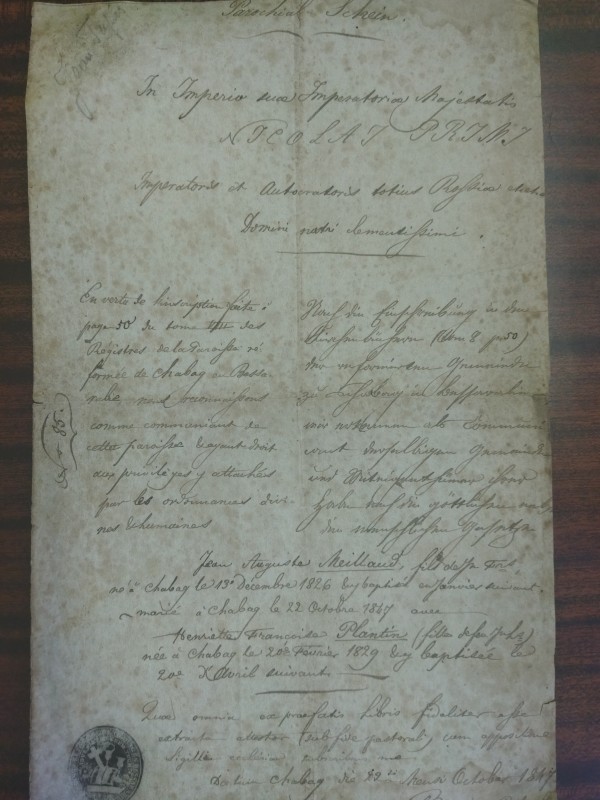 Parochial Schein.
In Imperio suæ Imperatoriæ Majestatis
NICOLAI PRIMI
Imperatoris et Autocratoris totius Rossiæ
Domini nostri clementissimi.
En vertu de l'inscription faite à
page 50 du tome des
Régistres de la Paroisse ré
formée de Chabag en Bessa
rabie nous reconnaissons
comme communiant de
cette paroisse & ayant droit
aux privilèges y attachés
par les ordonnances divi-
nes & humaines
Nach der Einschreibung in den
Kirchenbüchern (tom 8. p 50)
der reformirten Gemeinde
zu in Bessarabien
wir als Communi
cant derselbigen Gemeinde
und
nach den göttlichen und
den menschlichen Gesetzen
No 86.
Jean Auguste Meillaud, fils de
né à Chabag le 13e Décembre 1826 & y baptisé en Janvier suivant.
marié à Chabag le 22 Octobre 1847 avec
Henriette Françoise Plantin (fille de feu)
née à Chabag le 20e Février 1829 & y baptisée le
20e Avril suivant
Quæ omnia ex præfatis libris fideliter esse
extracta (sub fide pastorali) cum appositione
Sigilli
Datum Chabag die Mensis October 1847